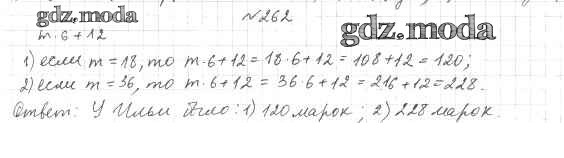 gdz.moda №262 gdz.moda
m·6+12
1) если m=18, то m·6+12=18·6+12=108+12=120;
2) если m=36, то m·6+12=36·6+12=216+12=228.
Ответ: У Ильи было: 1) 120 марок; 2) 228 марок.